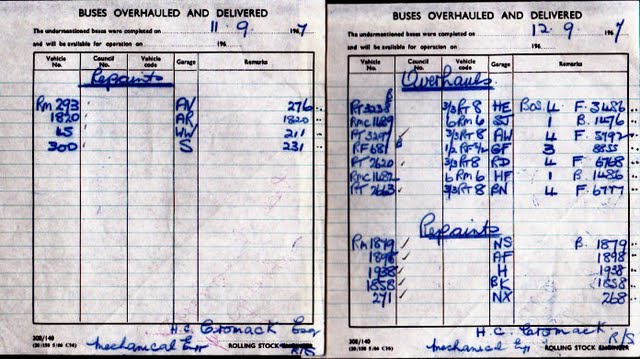 BUSES OVERHAULED AND DELIVERED
The undermentioned buses were completed on 11.9 1967
and will be available for operation on 196
Vehicle No. Council No. Vehicle code Garage Remarks
Repaints
RM 293 AV 276
1820 AR 1820
45 WW 211
300 S 231
H.C. Cromack Esq
Mechanical Engr
308/140
ROLLING STOCK ENGINEER
R/S
BUSES OVERHAULED AND DELIVERED
The undermentioned buses were completed on 12.9 1967
and will be available for operation on 196
Vehicle No. Council No. Vehicle code Garage Remarks
Overhauls
RT 3238 3/3RT8 HE Bos. 4 F. 3486
RMC 1489 6RM6 SJ 1 B. 1476
RT 3297 3/3RT8 AW 4 F. 3792
RF 681 GF 3 8855
RT 2620 3/3RT8 RD 4 F. 6768
RMC 1487 6RM6 HF 1 B. 1486
RT 2663 3/3RT8 BN 4 F. 6777
Repaints
RM 1879 NS B. 1879
1898 AF 1898
1938 H 1938
1858 BK 1858
271 NX 268
H.C. Cromack
308/140
Mechanical Engr
ROLLING STOCK ENGINEER
R/S